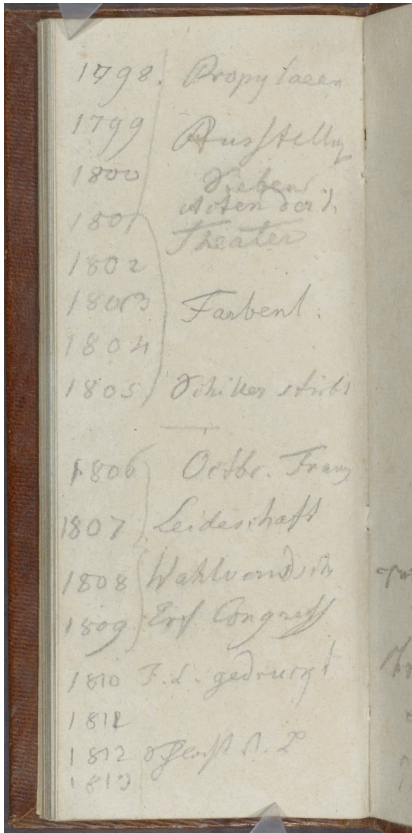 1798. Propylaeen
1799 Ausstellg
1800 Sieben
Arten der
1801 Theater
1802
1803 Farbenl.
1804
1805 Schiller stirbt
1806 Octbr. Franz
1807 Leideschaft
1808 Wahlvandsch
1809 Erf Congress
1810 F. L. gedruckt
1811
1812
1813